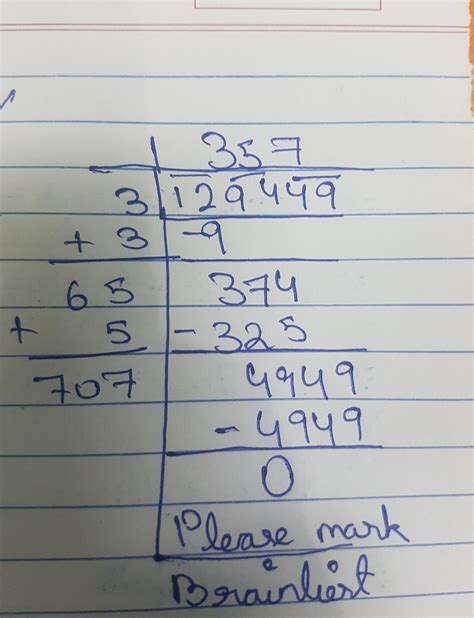 357
3 129449
+ 3 -9
65 374
+ 5 - 325
707 4949
- 4949
0
Please mark
Brainliest